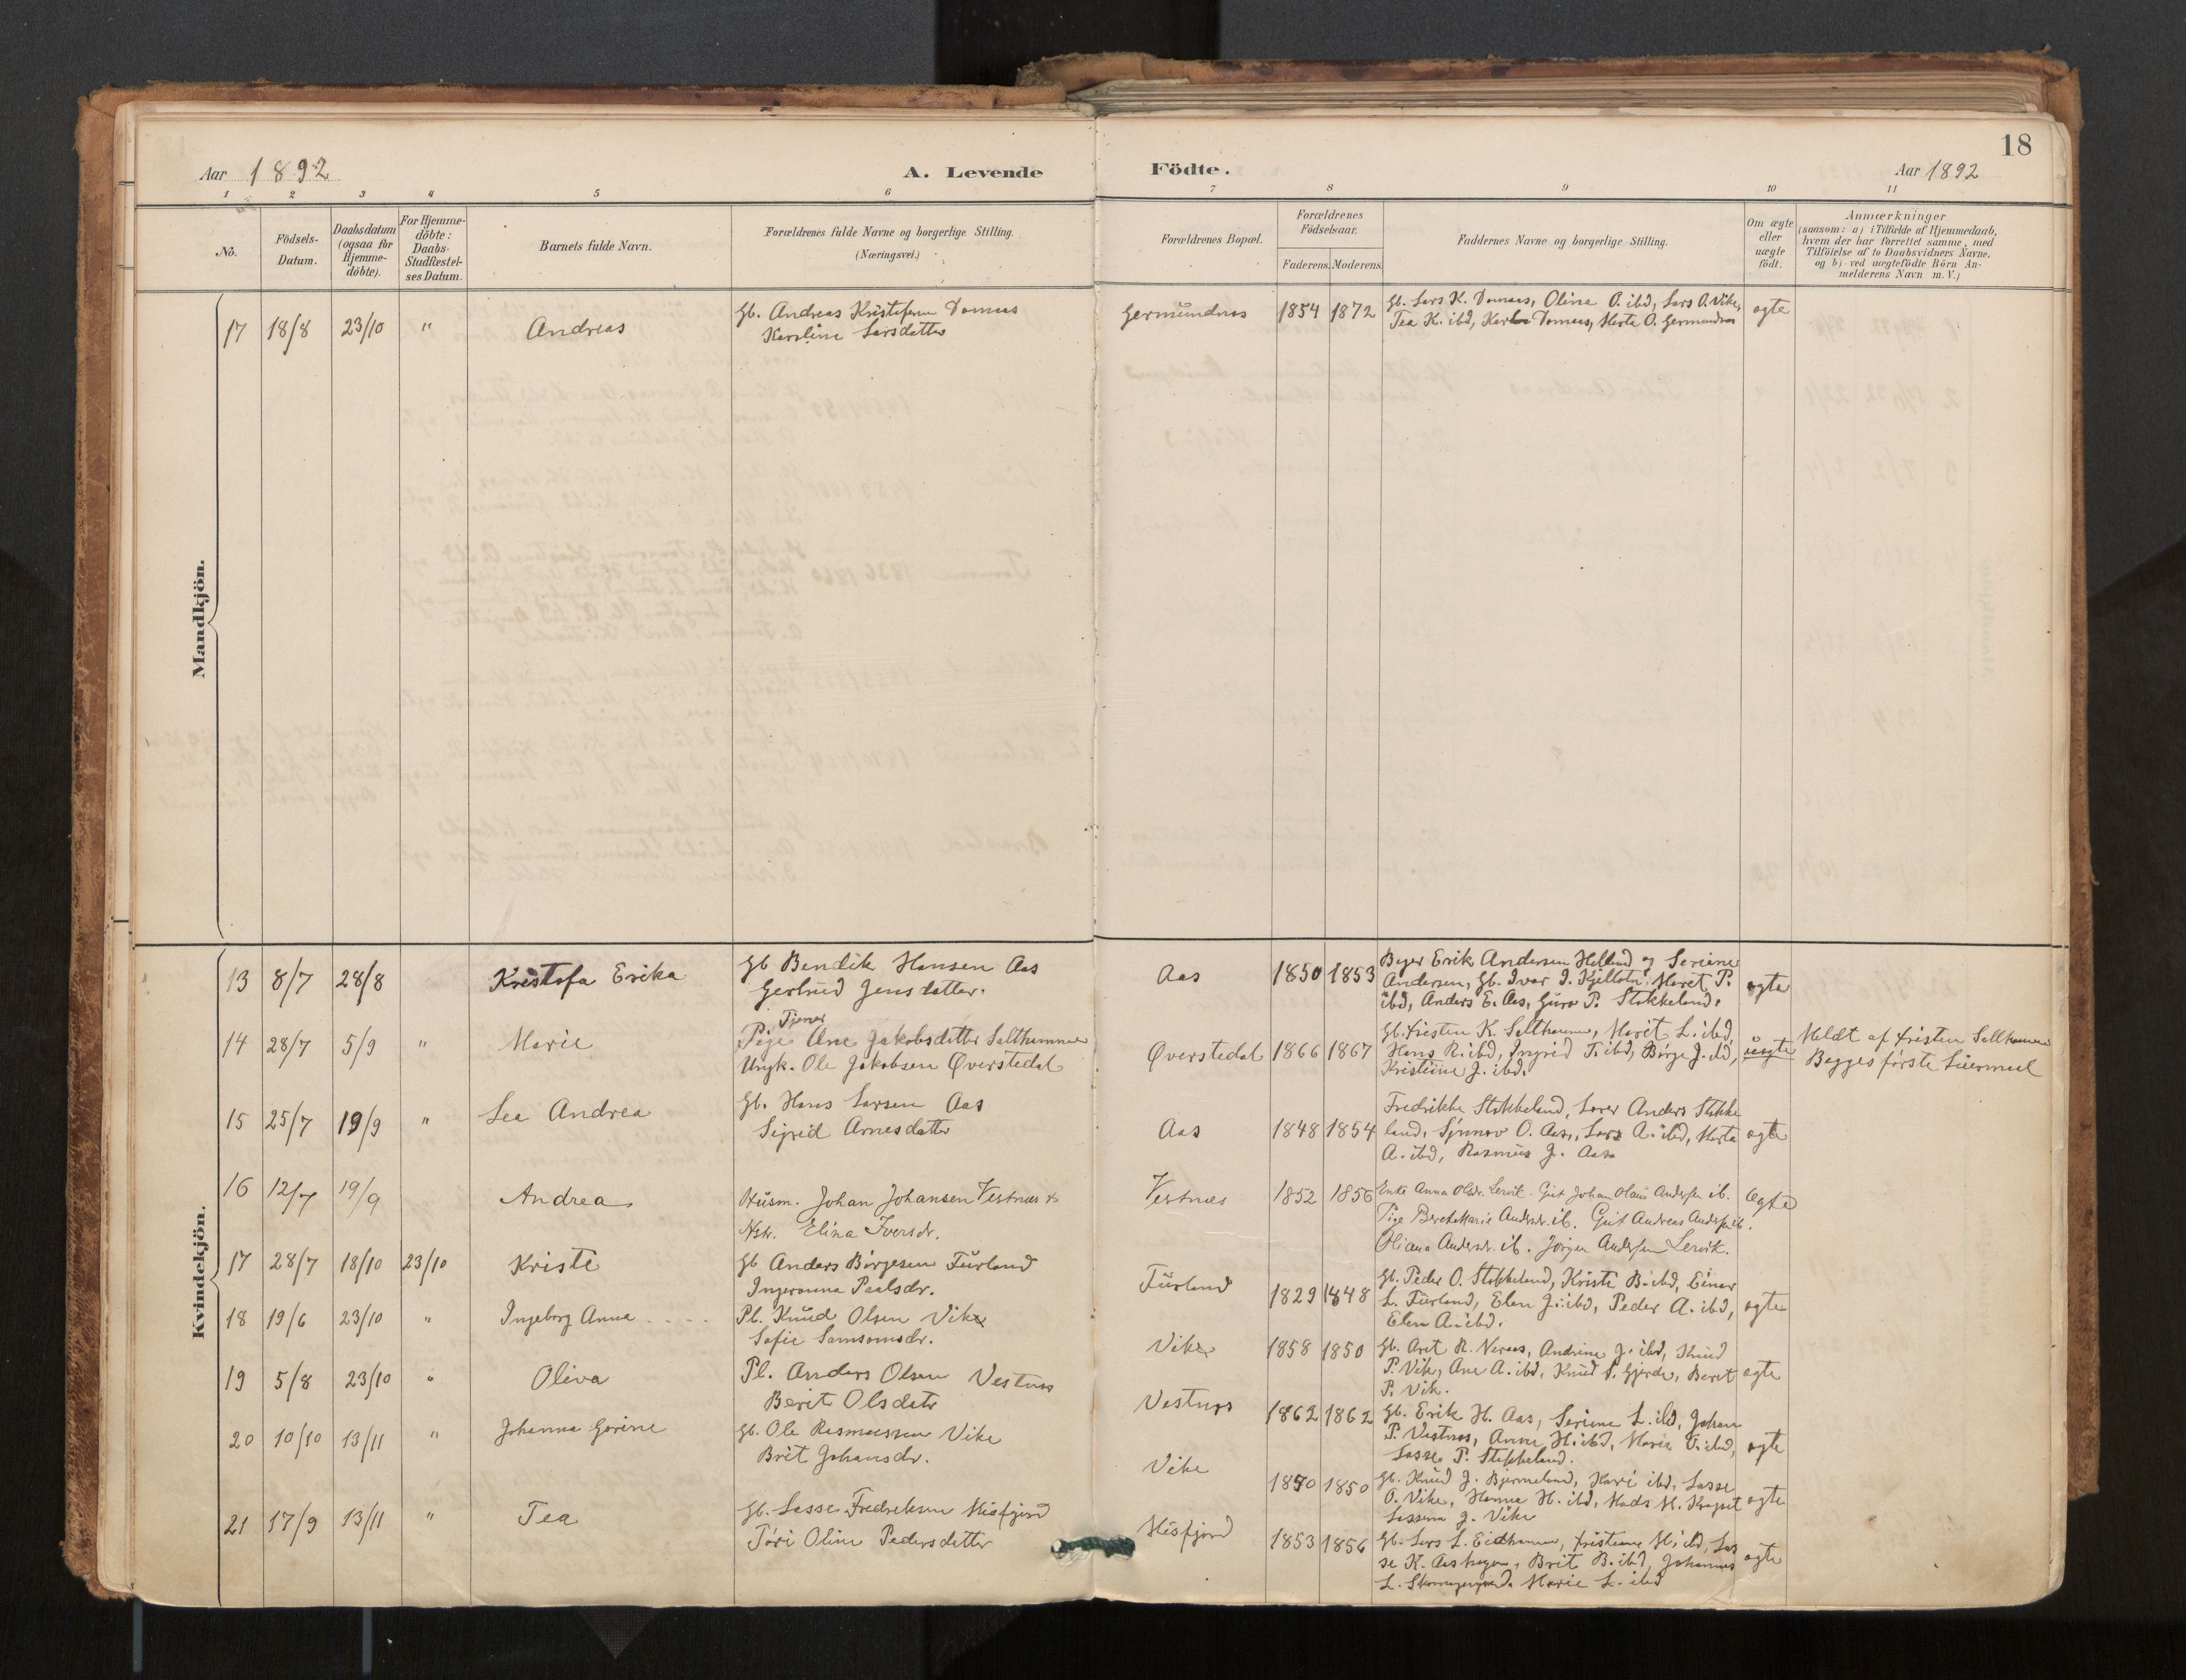 18
Aar 1892
A. Levende
Födte.
Aar 1892
1 2 3 4 5 6 7 8 9 10 11
No.
Födsels-
Datum.
Daabsdatum
(ogsaa for
Hjemme-
döbte).
For Hjemme-
döbte:
Daabs-
Stadfæstel-
ses Datum.
Barnets fulde Navn.
Forældrenes fulde Navne og borgerlige Stilling.
(Næringsvei.)
Forældrenes Bopæl.
Forældrenes
Födselsaar.
Faderens. Moderens.
Faddernes Navne og borgerlige Stilling.
Om ægte
eller
uægte
födt.
Anmærkninger
(saasom: a) i Tilfælde af Hjemmedaab,
hvem der har forrettet samme, med
Tilföielse af to Daabsvidners Navne.
og b) ved uægtefödte Börn An-
melderens Navn m. V.)
Mandkjön.
17 18/8 23/10 " Andreas
Gb. Andreas Kristofersen
Karoline Larsdatter
Germundnes 1854 1872
Gb. Lars K. Oline O. ibd, Lars O. Vike,
Tea K. ibd, Marta O. Germundnes
ægte
Kvindekjön.
13 8/7 28/8 Kristofa Erika
Gb Bendik Hansen Aas
Gertrud Jensdatter.
Aas 1850 1853
Erik Andersen Helland og Seriane
Andersen, Gb. Ivar I. Maret P.
ibd, Anders E. Aas, Guro P. Stokkeland.
ægte
14 28/7 5/9 " Marie
Tjener
Pige Ane Jakobsdatter Salthammer
Ungk. Ole Jakobsen Øverstedal
Øverstedal 1866 1867
Gb. K. Salthammer, Marit L. ibd,
Hans R. ibd, Ingrid T. ibd, Børge J. ibd,
Kristine J. ibd.
uægte
Meldt af Salthammer
Begges første Leiermaal
15 25/7 19/9 " Lea Andrea
Gb. Hans Larsen Aas
Sigrid Arnesdatter
Aas 1848 1854
Fredrikke Stokkeland, Anders Stokke
land, Synnøv O. Aas, Lars A. ibd, Marta
A. ibd, Rasmus J. Aas
ægte
16 12/7 19/9 Andrea
Husm. Johan Johansen Vestnæs &
Hstr. Elina Iversdr.
Vestnæs 1852 1856
Enke Anna Olsdr. Lervik. Gut Johan Olaus Andersen ib.
Pige Beret Marie Andersdr. ib. Gut Andreas Andersen ib.
Oliana Andersdr. ib. Jørgen Andersen Lervik.
ægte
17 28/7 18/10 23/10 Kriste
Gb Anders Børgesen Furland
Ingeranna Paalsdr.
Furland 1829 1848
Gb. Peder O. Stokkeland, Kristi B. ibd, Einar
L. Furland, Elen J. ibd, Peder A. ibd,
Elen A. ibd.
ægte
18 19/6 23/10 " Ingeborg Anna
Pl. Knud Olsen Vike
Sofie Samsonsdr.
Vike 1858 1850
Gb. Aret R. Andrine J. ibd, Knud
P. Vike, Ane A. ibd, Knud S. Gjerde, Beret
P. Vik.
ægte
19 5/8 23/10 " Oliva
Pl. Anders Olsen Vestnes
Berit Olsdatr
Vestnes 1862 1862
Gb. Erik H. Aas, Serine L. ibd, Johan
P. Vestnes, Anne H. ibd, Maria O. ibd,
Lasse P. Stokkeland.
ægte
20 10/10 13/11 " Johanna Gorine
Gb. Ole Rasmussen Vike
Brit Johansdr.
Vike 1850 1850
Gb. Knud J. Bjermeland, Kari ibd, Lasse
O. Vike, Hanna H. ibd, Mads M.
J. Vike
ægte
21 17/9 13/11 " Tea
Gb. Lasse Fredriksen Misfjord
Tøri Oline Pedersdatter
Misfjord 1853 1856
Gb. Lars L. Eidhammer, M. ibd, Las
se K. Aashagen, Brit B. ibd, Johannes
L. Marie L. ibd
ægte